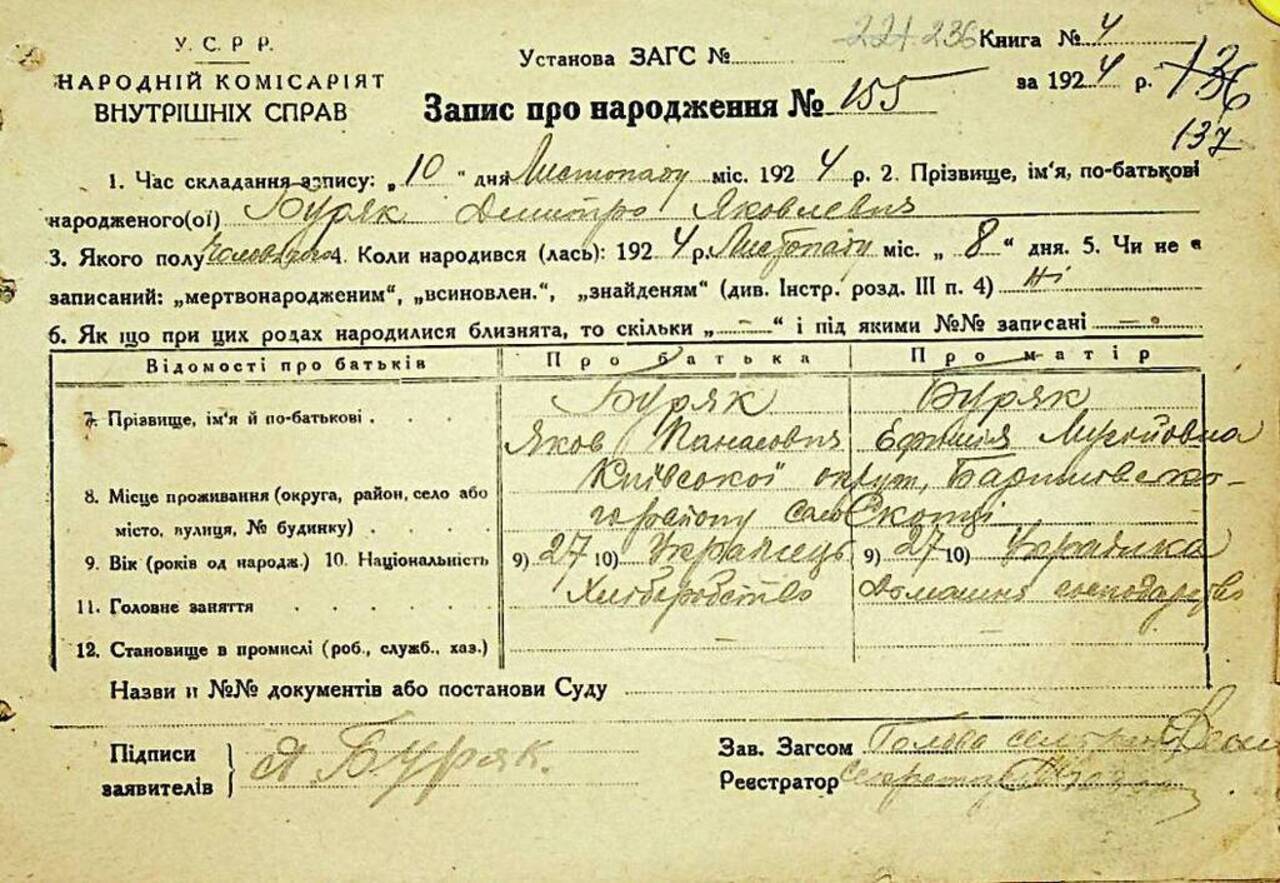 У. С. Р. Р.
НАРОДНІЙ КОМІСАРІЯТ
ВНУТРІШНІХ СПРАВ
Установа ЗАГС №
221 236 Книга № 4
за 1924 р. 136
137
Запис про народження № 155
1. Час складання запису: „10 " дня Листопаду міс. 1924 р. 2. Прізвище, ім'я, по-батькові
народженого(ої) Буряк Дмитро Яковлевич
3. Якого полу Чоловічого 4. Коли народився (лась): 1924 р. Листопаду міс. „ 8 " дня. 5. Чи не є
записаний: „мертвонародженим", „всиновлен.", „знайденям" (див. Інстр. розд. III п. 4) Ні
6. Як що при цих родах народилися близнята, то скільки „ – " і під якими №№ записані –
Відомості про батьків Про батька Про матір
7. Прізвище, ім'я й по-батькові . . . Буряк Буряк
Яков Панасович Ефимія
8. Місце проживання (округа, район, село або Київської округи, Баришівсько-
місто, вулиця, № будинку) . . . . го району село Скопці
9. Вік (років од народж.) 10. Національність 9) 27 10) Українець 9) 27 10) Українка
11. Головне заняття . . . . . . Хліборобство Домашнє господарство
12. Становище в промислі (роб., служб., хаз.) – –
Назви и №№ документів або постанови Суду
Підписи
заявителів } Я Буряк.
Зав. Загсом Голова
Реєстратор Секретар